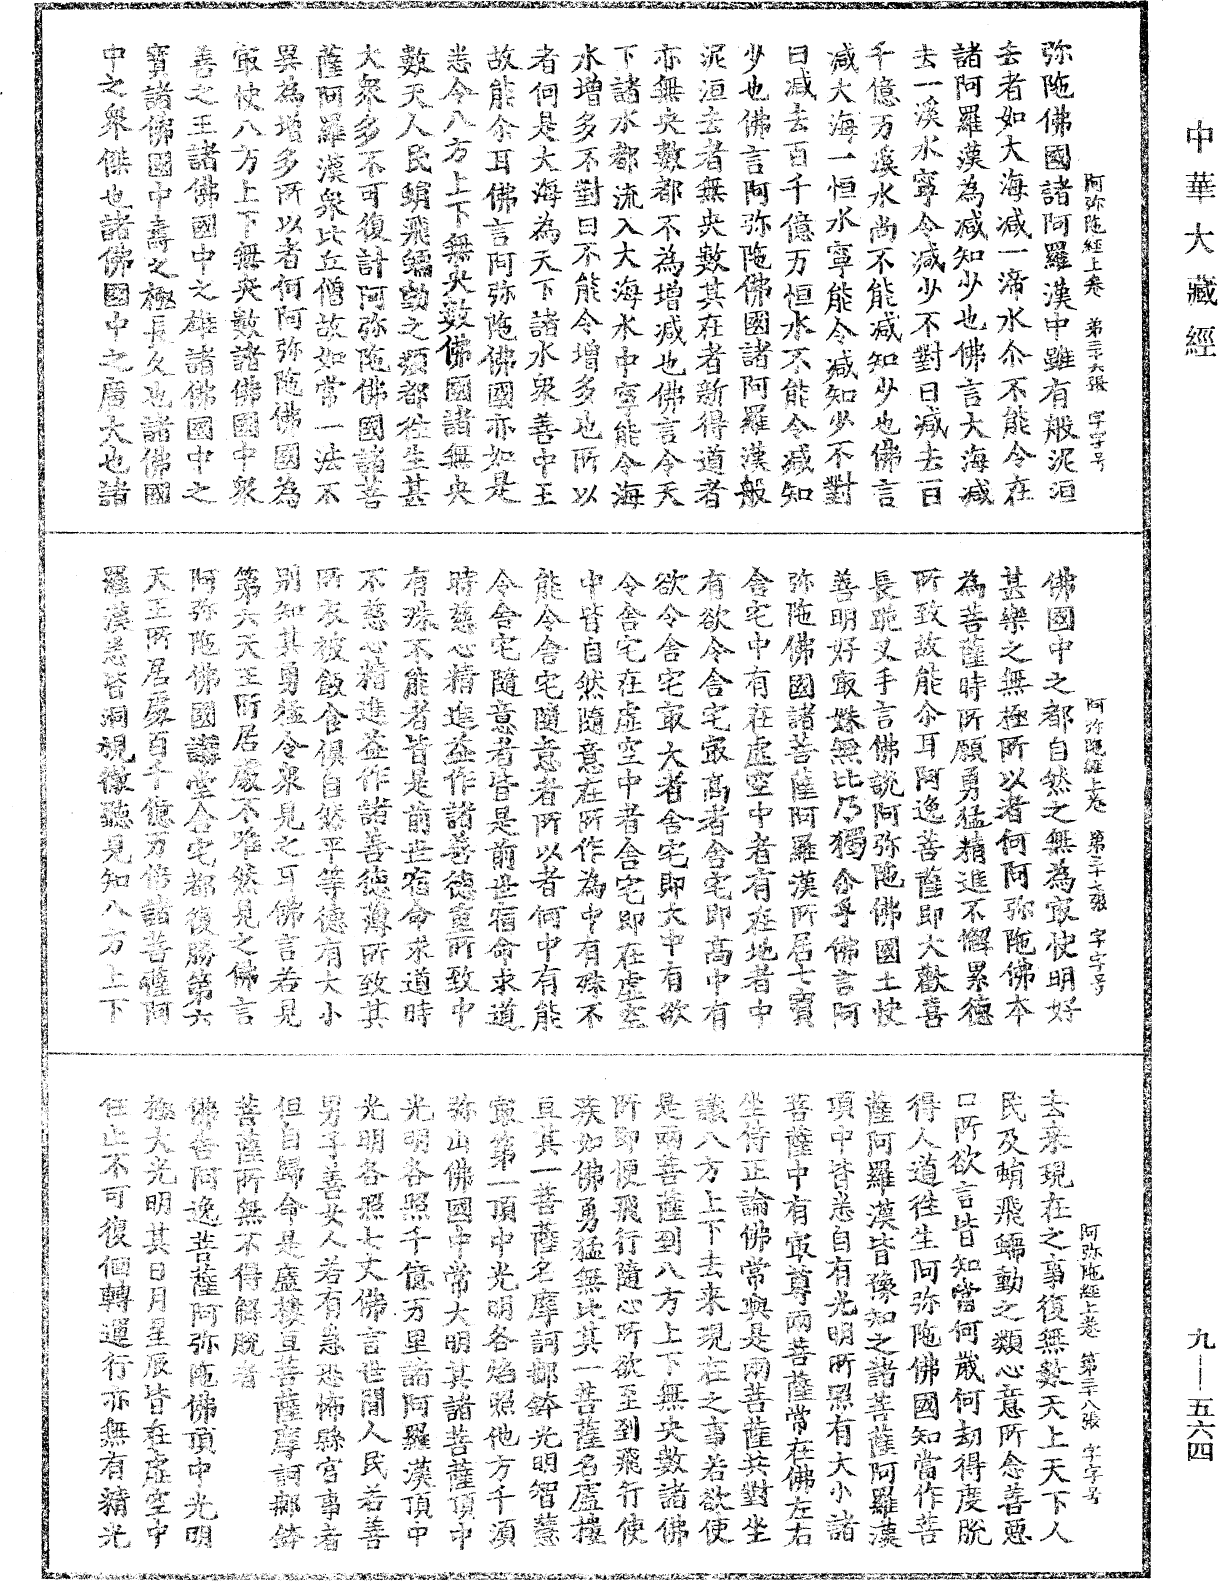 中華大藏經
阿弥陁經上卷　第三十六張　字字号
弥陁佛國諸阿羅漢中雖有般泥洹
去者如大海減一渧水尒不能令在
諸阿羅漢為減知少也佛言大海減
去一溪水寧令減少不對曰減去百
千億万溪水尚不能減知少也佛言
減大海一恒水寧能令減知少不對
曰減去百千億万恒水不能令減知
少也佛言阿弥陁佛國諸阿羅漢般
泥洹去者無央數其在者新得道者
亦無央數都不為增減也佛言令天
下諸水都流入大海水中寧能令海
水增多不對曰不能令增多也所以
者何是大海為天下諸水眾善中王
故能尒耳佛言阿弥陁佛國亦如是
悉令八方上下無央數佛國諸無央
數天人民蜎飛蠕動之類都往生甚
大眾多不可復計阿弥陁佛國諸菩
薩阿羅漢眾比丘僧故如常一法不
異為增多所以者何阿弥陁佛國為
㝡快八方上下無央數諸佛國中眾
善之王諸佛國中之雄諸佛國中之
寳諸佛國中壽之極長久也諸佛國
中之眾傑也諸佛國中之廣大也諸
阿弥陁經上卷　第三十七張　字字号
佛國中之都自然之無為㝡快明好
甚樂之無極所以者何阿弥陁佛本
為菩薩時所願勇猛精進不懈累德
所致故能尒耳阿逸菩薩即大歡喜
長跪叉手言佛説阿弥陁佛國土快
善明好㝡姝無比乃獨尒乎佛言阿
弥陁佛國諸菩薩阿羅漢所居七寳
舍宅中有在虛空中者有在地者中
有欲令舍宅㝡高者舍宅即高中有
欲令舍宅㝡大者舍宅即大中有欲
令舍宅在虛空中者舍宅即在虛空
中皆自然隨意在所作為中有殊不
能令舍宅隨意者所以者何中有能
令舍宅隨意者皆是前世宿命求道
時慈心精進益作諸善德重所致中
有殊不能者皆是前世宿命求道時
不慈心精進益作諸善德薄所致其
所衣被飲食俱自然平等德有大小
別知其勇猛令眾見之耳佛言若見
第六天王所居處不唯然見之佛言
阿弥陁佛國講堂舍宅都復勝第六
天王所居處百千億万倍諸菩薩阿
羅漢悉皆洞視徹聽見知八方上下
阿弥陁經上卷　第三十八張　字字号
去来現在之事復無數天上天下人
民及蜎飛蠕動之類心意所念善惡
口所欲言皆知當何歲何劫得度脫
得人道往生阿弥陁佛國知當作菩
薩阿羅漢皆豫知之諸菩薩阿羅漢
項中皆悉自有光明所照有大小諸
菩薩中有㝡尊兩菩薩常在佛左右
坐侍正論佛常與是兩菩薩共對坐
議八方上下去来現在之事若欲使
是兩菩薩到八方上下無央數諸佛
所即便飛行隨心所欲至到飛行使
疾如佛勇猛無比其一菩薩名廬樓
亘其一菩薩名摩訶那鉢光明智慧
㝡第一頂中光明各焰照他方千須
弥山佛國中常大明其諸菩薩頂中
光明各照千億万里諸阿羅漢頂中
光明各照七丈佛言世間人民若善
男子善女人若有急恐怖縣官事者
但自歸命是廬樓亘菩薩摩訶那鉢
菩薩所無不得解脫者
佛告阿逸菩薩阿弥陁佛頂中光明
極大光明其日月星辰皆在虛空中
住止不可復徊轉運行亦無有精光
九——五六四